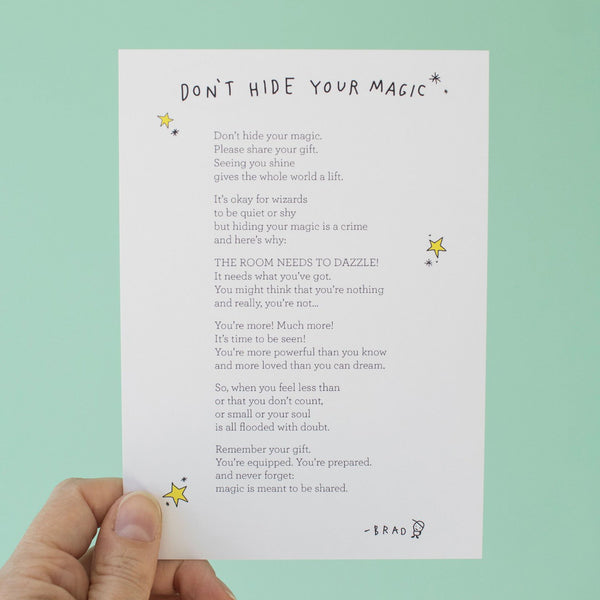 DON'T HIDE YOUR MAGIC*.
Don't hide your magic.
Please share your gift.
Seeing you shine
gives the whole world a lift.
It's okay for wizards
to be quiet or shy
but hiding your magic is a crime
and here's why:
THE ROOM NEEDS TO DAZZLE!
It needs what you've got.
You might think that you're nothing
and really, you're not...
You're more! Much more!
It's time to be seen!
You're more powerful than you know
and more loved than you can dream.
So, when you feel less than
or that you don't count,
or small or your soul
is all flooded with doubt.
Remember your gift.
You're equipped. You're prepared.
and never forget:
magic is meant to be shared.
-BRAD